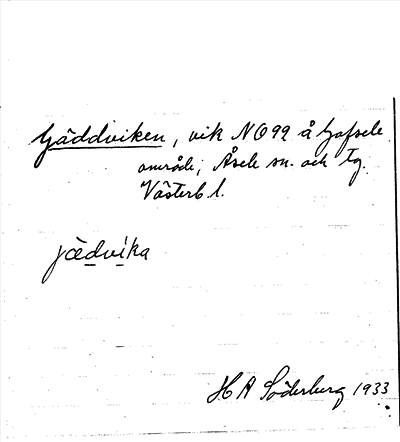 Gäddviken, vik NO99 å Gafsele
område, Åsele sn. och tg.
Västerb l.
jädvika
H A Söderberg 1933